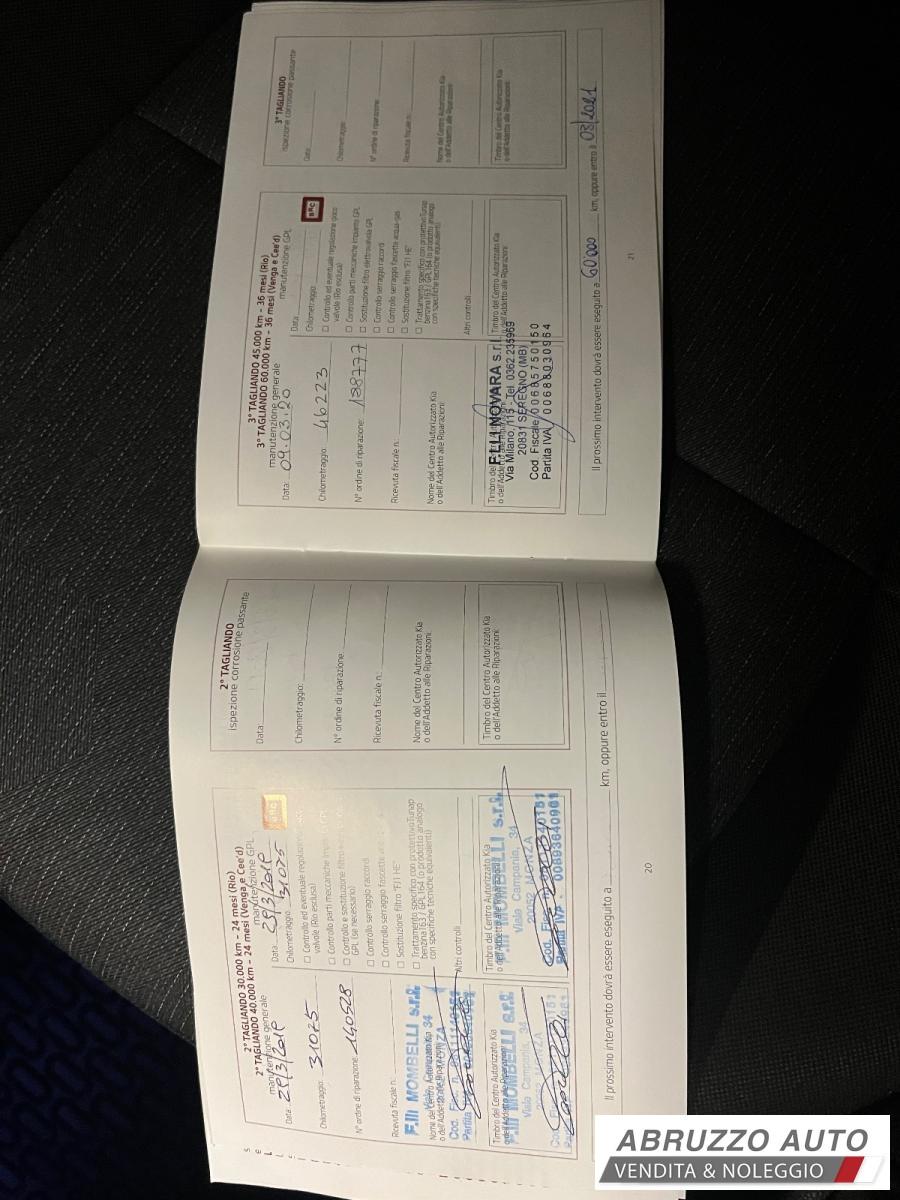 2° TAGLIANDO 30.000 km - 24 mesi (Rio)
2° TAGLIANDO 40.000 km - 24 mesi (Venga e Cee'd)
manutenzione generale
Data:
Chilometraggio: 31075
N° ordine di riparazione: 140528
Ricevuta fiscale n.:
F.lli MOMBELLI s.r.l.
Nome del Centro Autorizzato Kia
o dell'Addetto alle Riparazioni:
Timbro del Centro Autorizzato Kia
o dell'Addetto alle Riparazioni:
F.lli MOMBELLI s.r.l.
Viale Campania, 34
manutenzione GPL
Data:
BRC
Chilometraggio: 31075
☐ Controllo ed eventuale regolazione
valvole (Rio esclusa)
☐ Controllo parti meccaniche
☐ Controllo e sostituzione filtro
GPL (se necessario)
☐ Controllo serraggio raccordi
☐ Controllo serraggio fascette
☐ Sostituzione filtro "FJ1 HE"
☐ Trattamento specifico con protettivo Tunap
benzina 163 / GPL 164 (o prodotto analogo
con specifiche tecniche equivalenti)
Altri controlli
Timbro del Centro Autorizzato Kia
o dell'Addetto alle Riparazioni:
F.lli MOMBELLI s.r.l.
Viale Campania, 34
20052 MONZA
Partita IVA: 00893640961
2° TAGLIANDO
ispezione corrosione passante
Data:
Chilometraggio:
N° ordine di riparazione:
Ricevuta fiscale n.:
Nome del Centro Autorizzato Kia
o dell'Addetto alle Riparazioni:
Timbro del Centro Autorizzato Kia
o dell'Addetto alle Riparazioni:
Il prossimo intervento dovrà essere eseguito a km, oppure entro il
20
3° TAGLIANDO 45.000 km - 36 mesi (Rio)
3° TAGLIANDO 60.000 km - 36 mesi (Venga e Cee'd)
manutenzione generale
Data: 09.03.20
Chilometraggio: 46223
N° ordine di riparazione: 138777
Ricevuta fiscale n.:
Nome del Centro Autorizzato Kia
o dell'Addetto alle Riparazioni:
F.LLI NOVARA s.r.l.
Via Milano, 115 - Tel. 0362.235969
20831 SEREGNO (MB)
Cod. Fiscale 00685750150
Partita IVA 00688030964
manutenzione GPL
Data:
BRC
Chilometraggio:
☐ Controllo ed eventuale regolazione gioco
valvole (Rio esclusa)
☐ Controllo parti meccaniche impianto GPL
☐ Sostituzione filtro elettrovalvola GPL
☐ Controllo serraggio raccordi
☐ Controllo serraggio fascette acqua-gas
☐ Sostituzione filtro "FJ1 HE"
☐ Trattamento specifico con protettivo Tunap
benzina 163 / GPL 164 (o prodotto analogo
con specifiche tecniche equivalenti)
Altri controlli
Timbro del Centro Autorizzato Kia
o dell'Addetto alle Riparazioni:
3° TAGLIANDO
ispezione corrosione passante
Data:
Chilometraggio:
N° ordine di riparazione:
Ricevuta fiscale n.:
Nome del Centro Autorizzato Kia
o dell'Addetto alle Riparazioni:
Timbro del Centro Autorizzato Kia
o dell'Addetto alle Riparazioni:
Il prossimo intervento dovrà essere eseguito a 60'000 km, oppure entro il 03/2021
21
ABRUZZO AUTO
VENDITA & NOLEGGIO